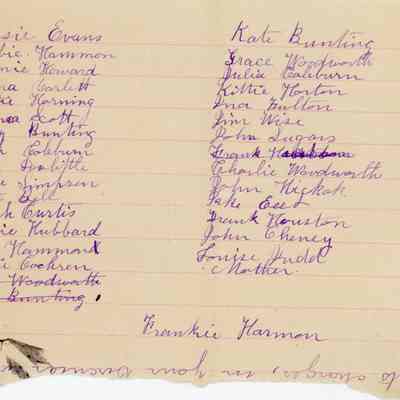 sie Evans
bie Hammon
nie Howard
na Corlett
ie Horning
na Scott
Bunting
Coleburn
Doolittle
e Simpson
Bell
h Curtis
ie Hubbard
Hammond
ie Cochren
Woodworth
Bunting.
Kate Bunting
Grace Woodworth
Julia Coleburn
Kittie Horton
Ina Fulton
Jim Wise
John Sugars
Frank
Charlie Woodworth
John Hickok
Jake East
Frank Houston
John Cheney
Louise Judd
Mother.
Frankie Harmon